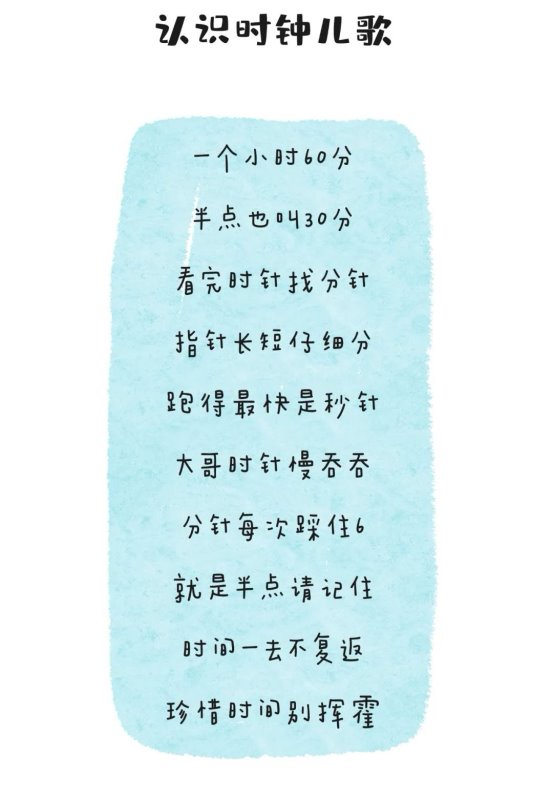 认识时钟儿歌
一个小时60分
半点也叫30分
看完时针找分针
指针长短仔细分
跑得最快是秒针
大哥时针慢吞吞
分针每次踩住6
就是半点请记住
时间一去不复返
珍惜时间别挥霍